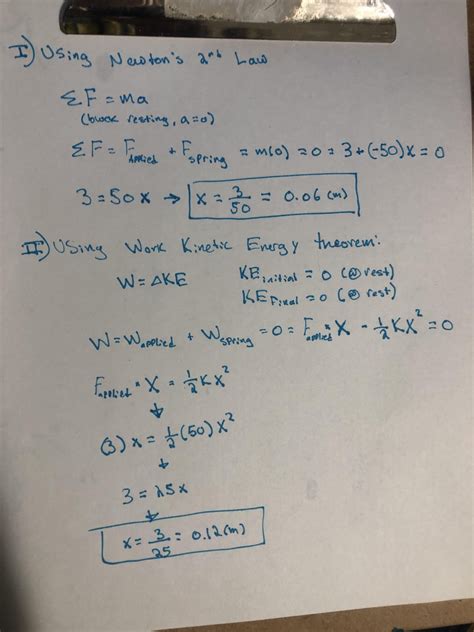 I) Using Newton's 2nd Law
ΣF = ma
(block resting, a=0)
ΣF = F_applied + F_spring = m(0) = 0 = 3 + (-50)x = 0
3 = 50x → x = 3/50 = 0.06 (m)
II) Using Work Kinetic Energy theorem:
W = ΔKE KE_initial = 0 (@ rest)
KE_Final = 0 (@ rest)
W = W_applied + W_spring = 0 = F_applied * X - 1/2 KX² = 0
F_applied * X = 1/2 KX²
↓
(3) x = 1/2 (50) X²
↓
3 = 25x
↓
x = 3/25 = 0.12 (m)